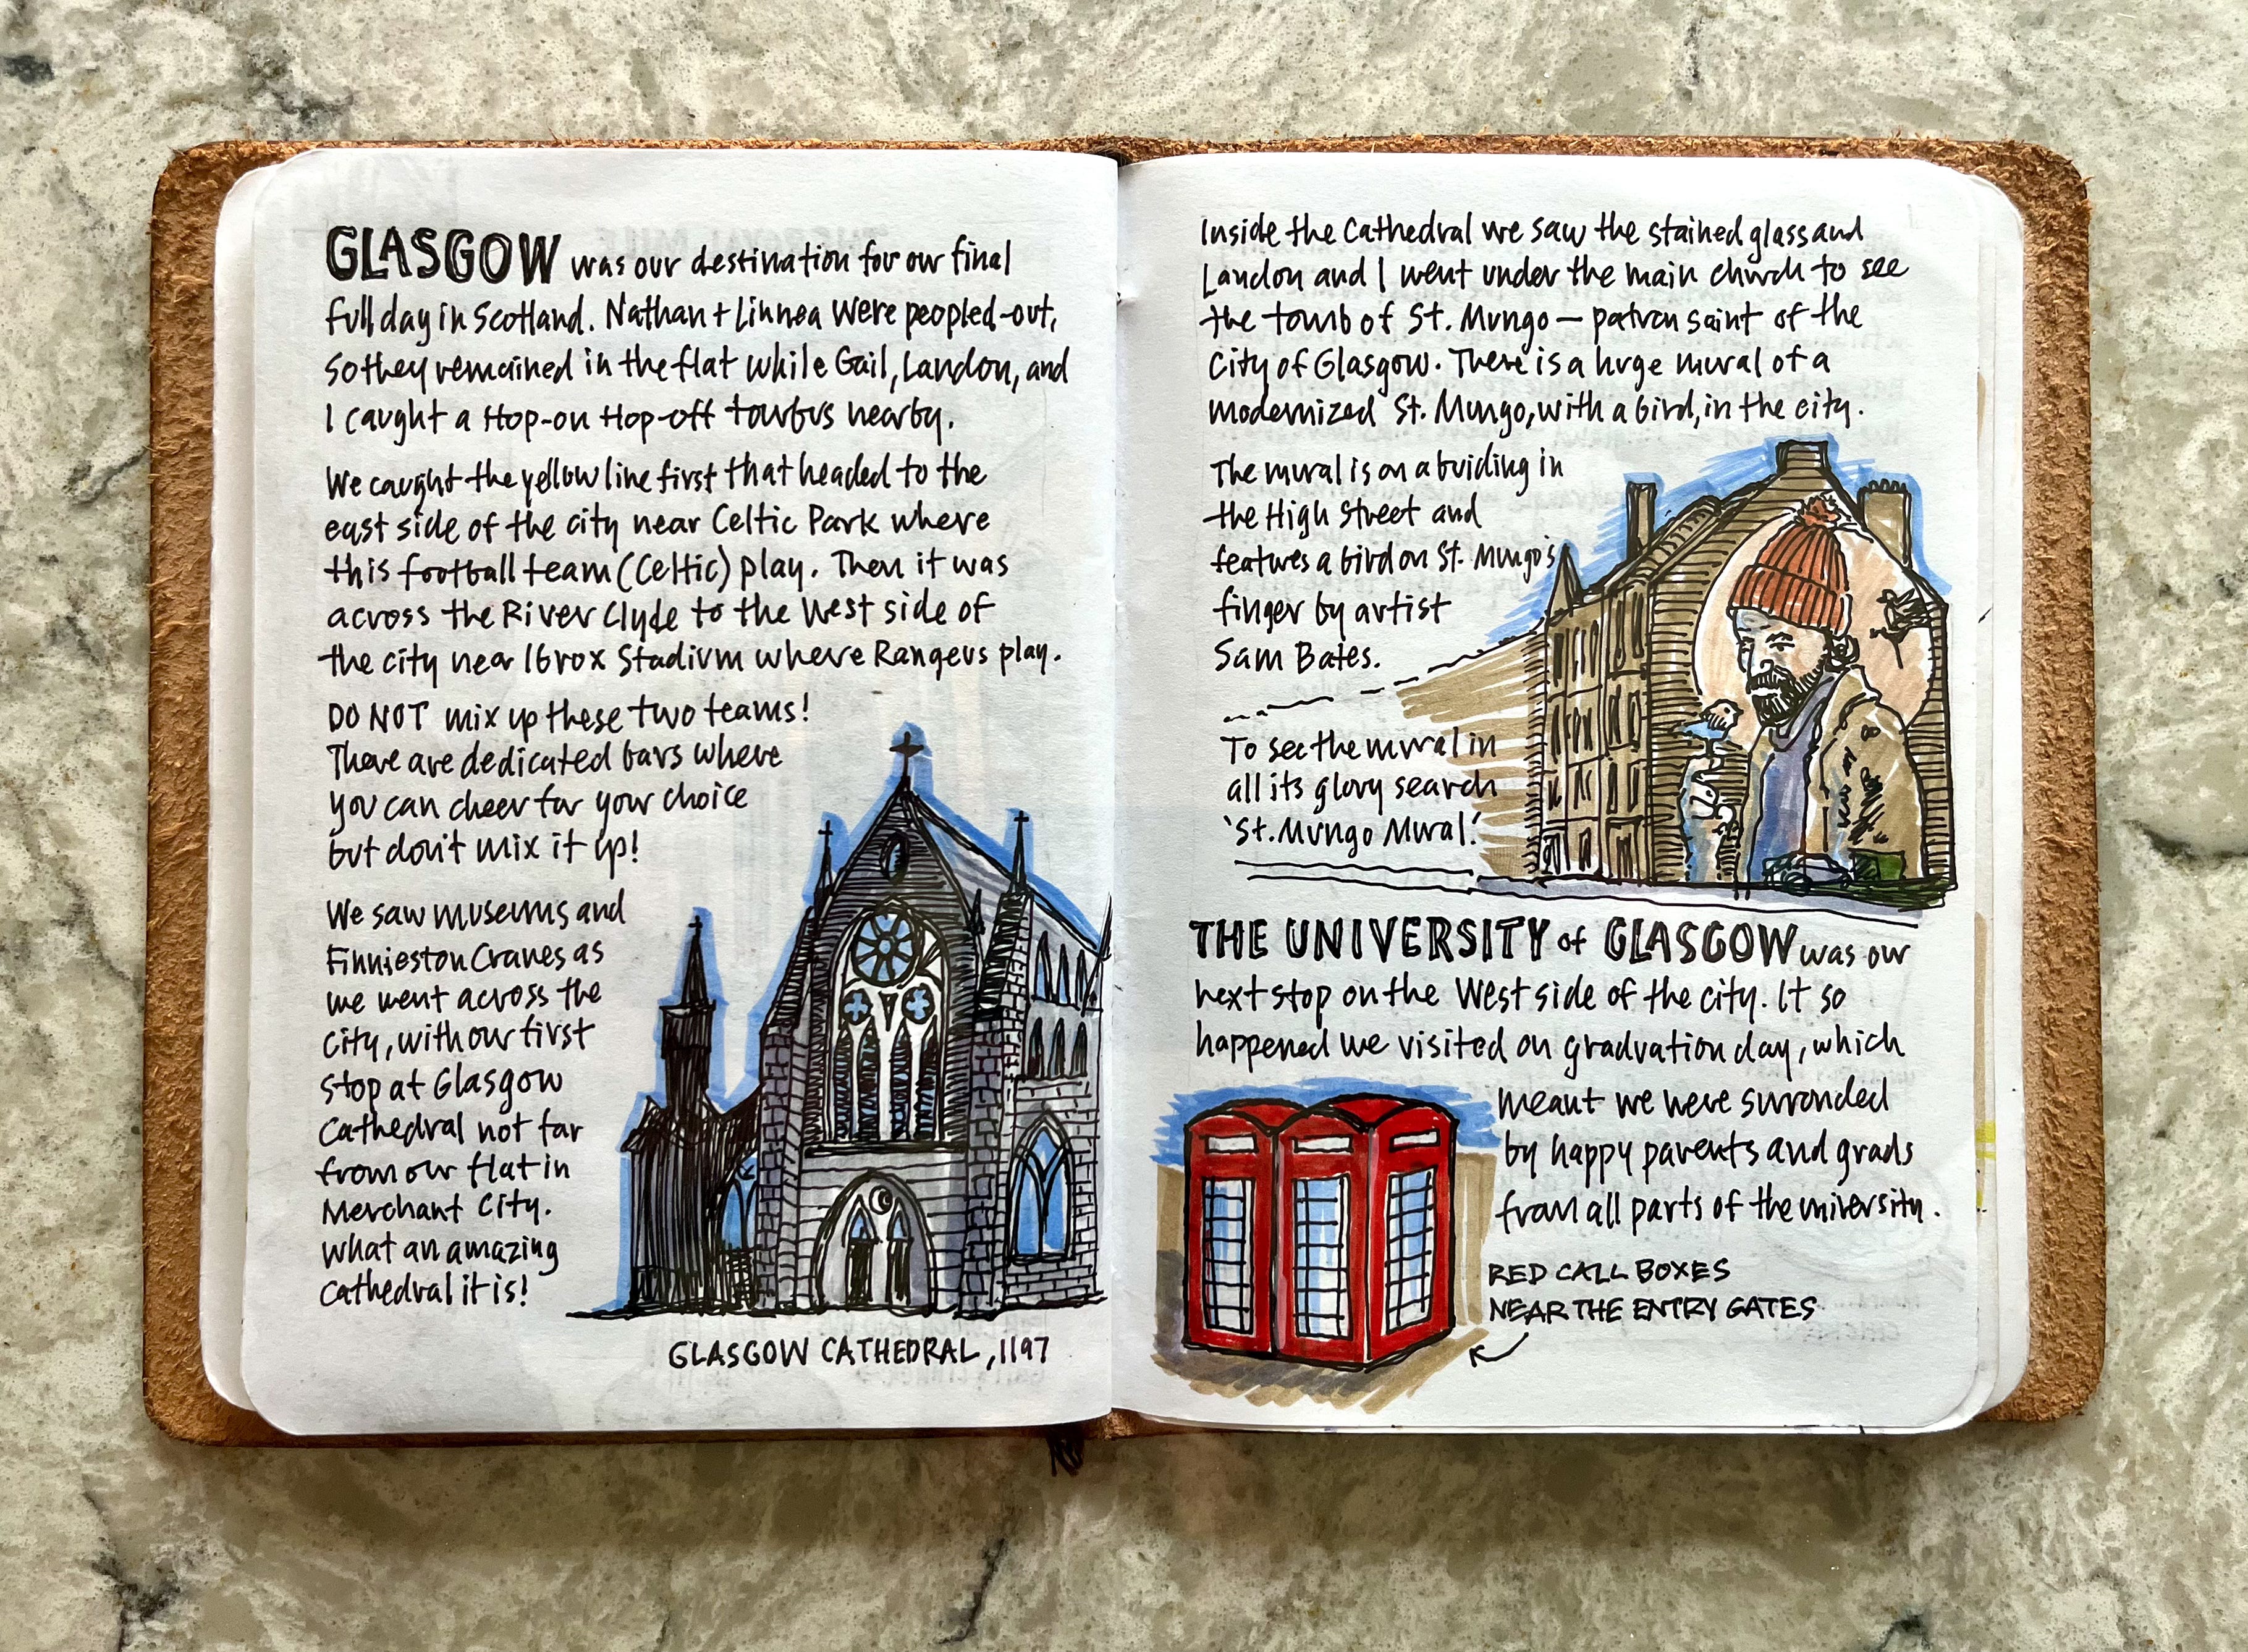 GLASGOW was our destination for our final
full day in Scotland. Nathan + Linnea were peopled-out,
so they remained in the flat while Gail, Landon, and
I caught a Hop-on Hop-off tourbus nearby.
We caught the yellow line first that headed to the
east side of the city near Celtic Park where
this football team (Celtic) play. Then it was
across the River Clyde to the West side of
the city near Ibrox Stadium where Rangers play.
DO NOT mix up these two teams!
There are dedicated bars where
you can cheer for your choice
but don't mix it up!
We saw museums and
Finnieston Cranes as
we went across the
city, with our first
stop at Glasgow
Cathedral not far
from our flat in
Merchant City.
What an amazing
Cathedral it is!
GLASGOW CATHEDRAL, 1197
Inside the Cathedral we saw the stained glass and
Landon and I went under the main church to see
the tomb of St. Mungo — patron saint of the
City of Glasgow. There is a huge mural of a
modernized St. Mungo, with a bird, in the city.
The mural is on a buiding in
the High Street and
features a bird on St. Mungo's
finger by artist
Sam Bates.
To see the mural in
all its glory search
'St. Mungo Mural.'
THE UNIVERSITY of GLASGOW was our
next stop on the West side of the city. It so
happened we visited on graduation day, which
meant we were surronded
by happy parents and grads
from all parts of the university.
RED CALL BOXES
NEAR THE ENTRY GATES